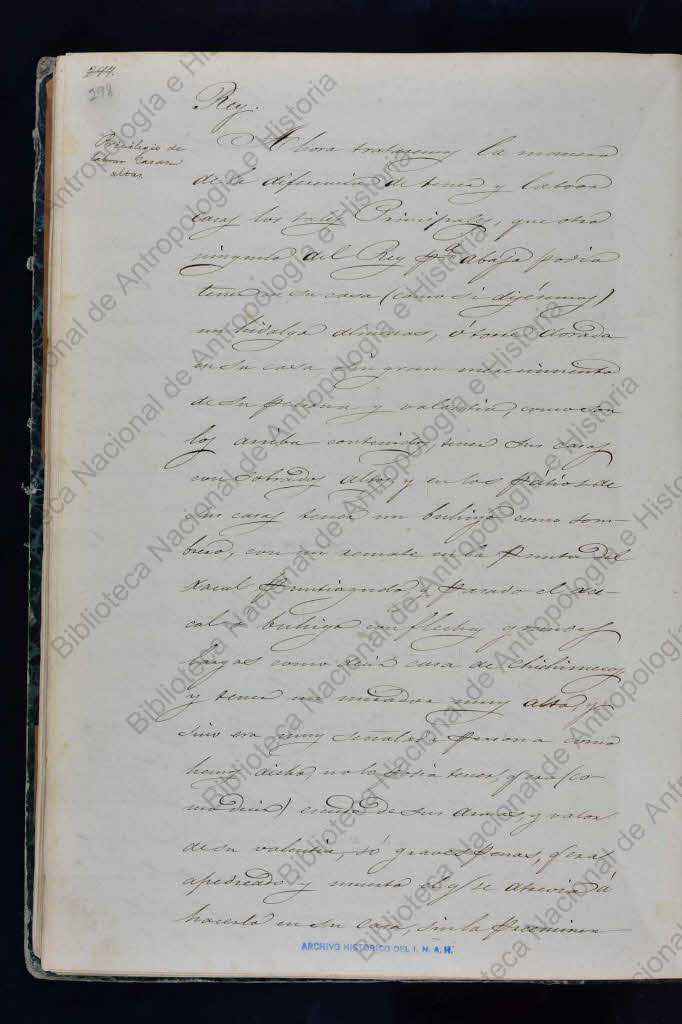 297.
298
Rey.
Privilegio de
labrar Casas
altas
Ahora trataremos la manera
de la diferencia de tener y labrar
casas los tales Principales, que otro
ninguno del Rey pa abajo podia
tener en su casa (como si dijésemos)
un hidalgo almenas, ó torre dorada
en su casa sin gran merecimiento
de su persona y valentia, como son
los arriba contenidos, tener sus casas
con sobrados altos, y en los patios de
sus casas tener un buhiyo como som-
brero, con un remate en la punta del
xacal puntiagudo, y pasado el xa-
cal o buhiyo con flechas grandes
largas como decir casa de Chichimecos
y tener un mirador muy alto, y
sino era muy señalada persona como
hemos dicho, no lo podia tener, q era (co-
mo decir) escudo de sus armas, y valor
de su valentia, só graves penas, q era
apedreado y muerto el q se atrevia á
hacerlo en su casa, sin la preeminen-
ARCHIVO HISTORICO DEL I. N. A. H.
Biblioteca Nacional de Antropología e Historia